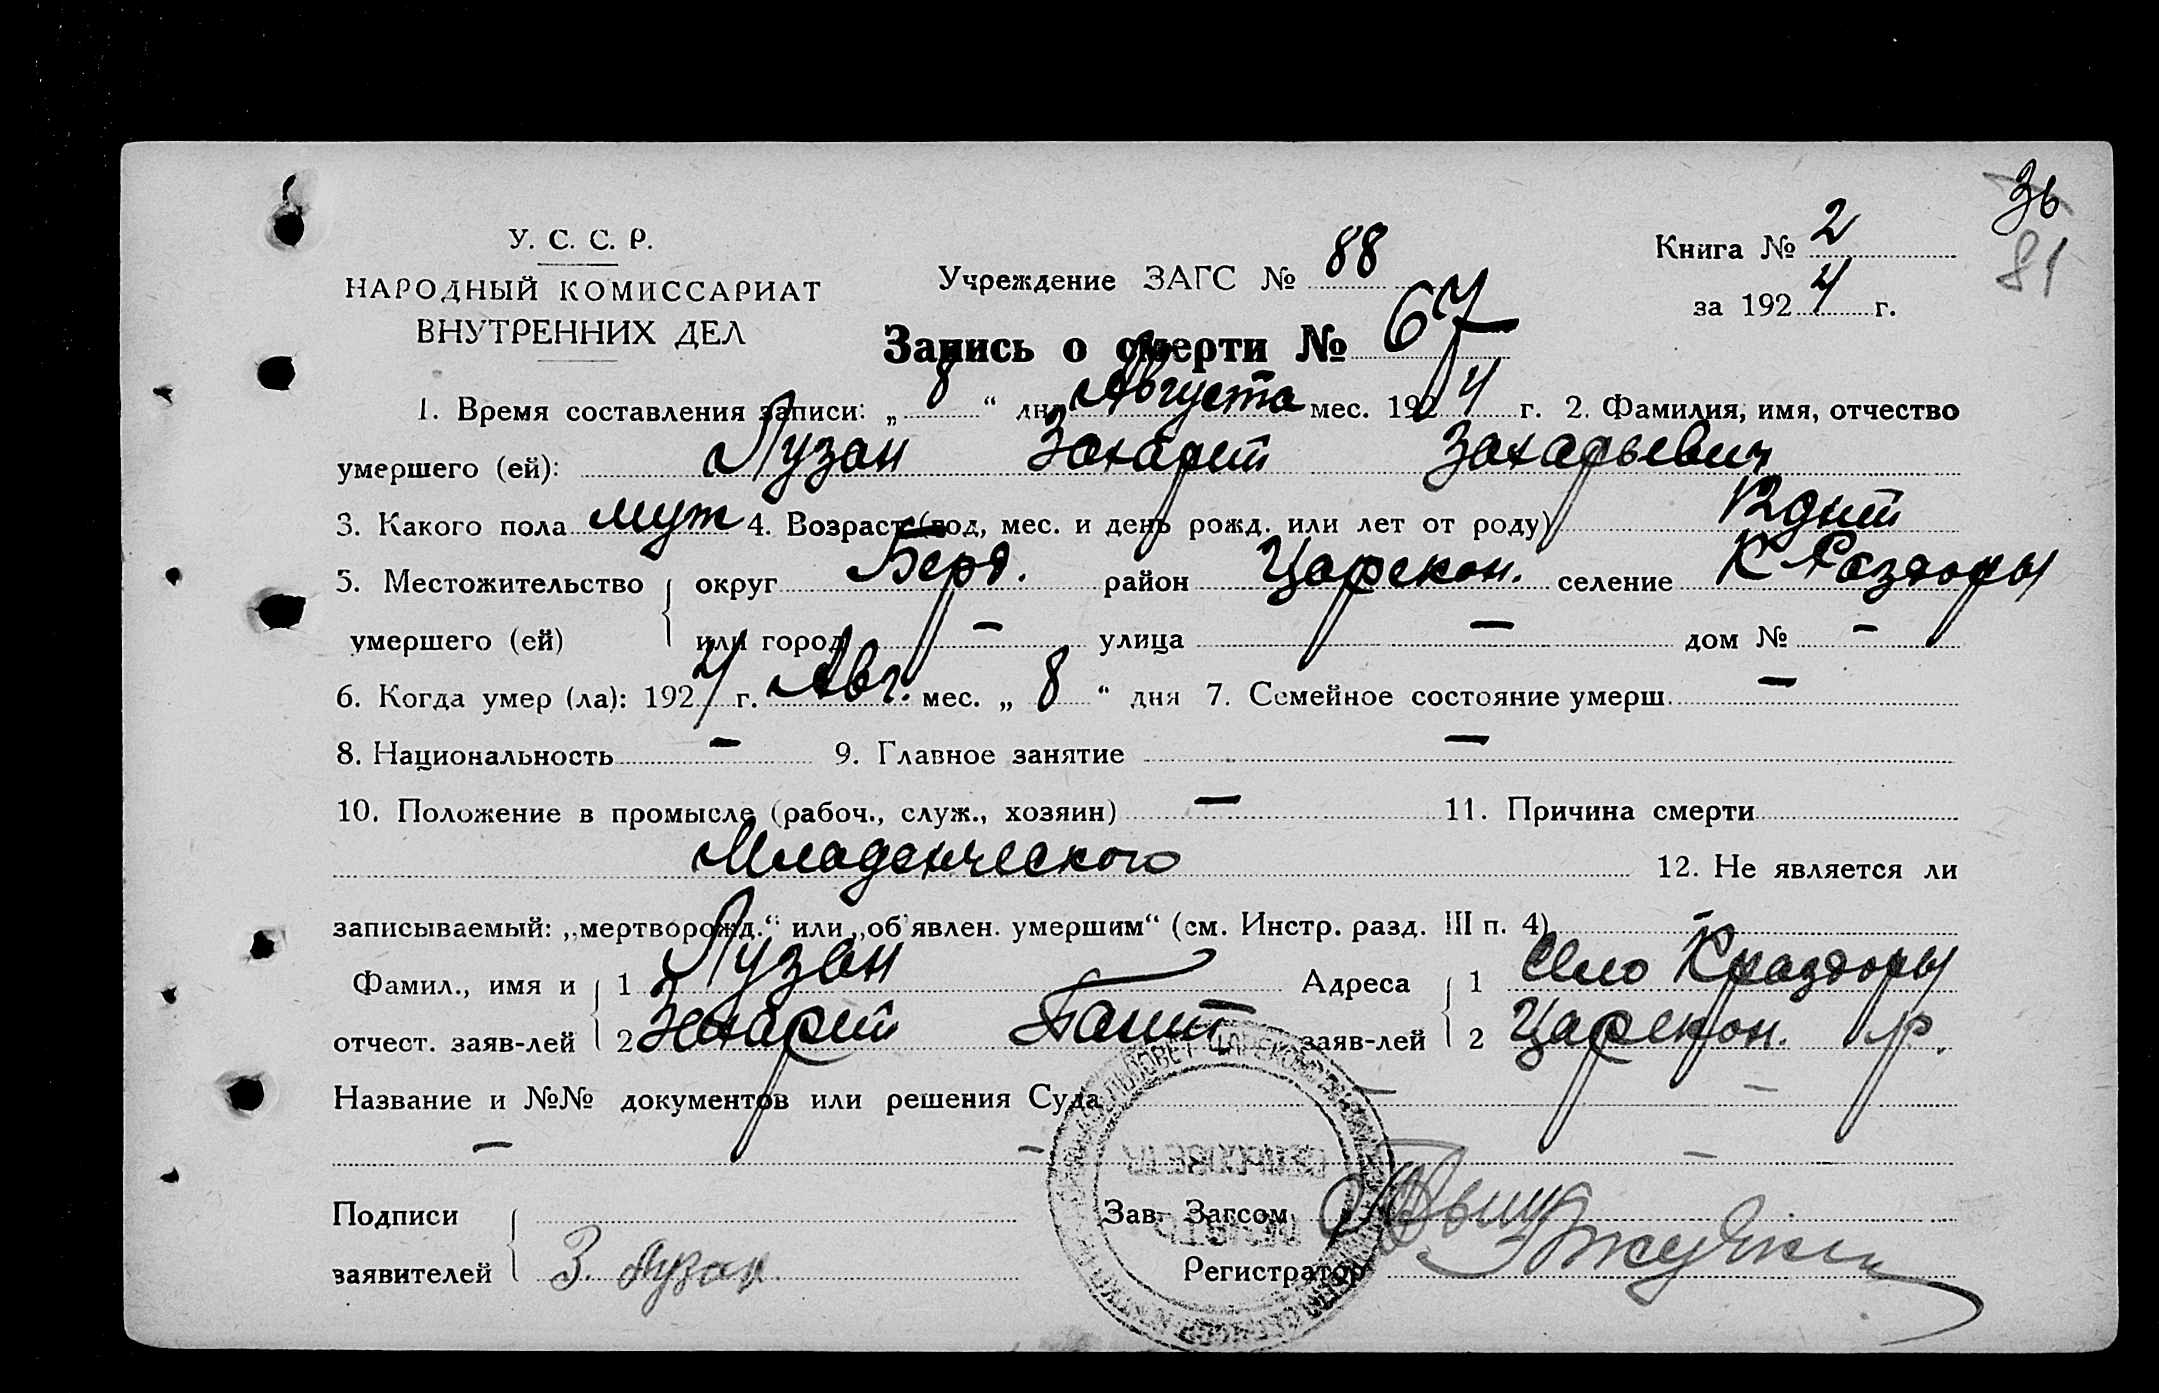 36
81
У. С. С. Р.
НАРОДНЫЙ КОМИССАРИАТ
ВНУТРЕННИХ ДЕЛ
Учреждение ЗАГС № 88
Книга № 2
за 1924 г.
Запись о смерти № 67
1. Время составления записи: „ 8 “ дня Августа мес. 1924 г. 2. Фамилия, имя, отчество
умершего (ей): Лузан Захарий Захарьевич
3. Какого пола муж 4. Возраст (год, мес. и день рожд. или лет от роду) 12 дней
5. Местожительство округ Берд. район Царекон. селение К Раздоры
умершего (ей) или город – улица – дом № –
6. Когда умер (ла): 1924 г. Авг. мес. „ 8 “ дня 7. Семейное состояние умерш. –
8. Национальность – 9. Главное занятие –
10. Положение в промысле (рабоч., служ., хозяин) – 11. Причина смерти
Младенческого 12. Не является ли
записываемый: „мертворожд.“ или „об'явлен. умершим“ (см. Инстр. разд. III п. 4) –
Фамил., имя и 1 Лузан Адреса 1 Село К раздоры
отчест. заяв-лей 2 Захарий заяв-лей 2 Царекон. р.
Название и №№ документов или решения Суда – –
– – –
Подписи Зав. Загсом
заявителей З. Лузан Регистратор